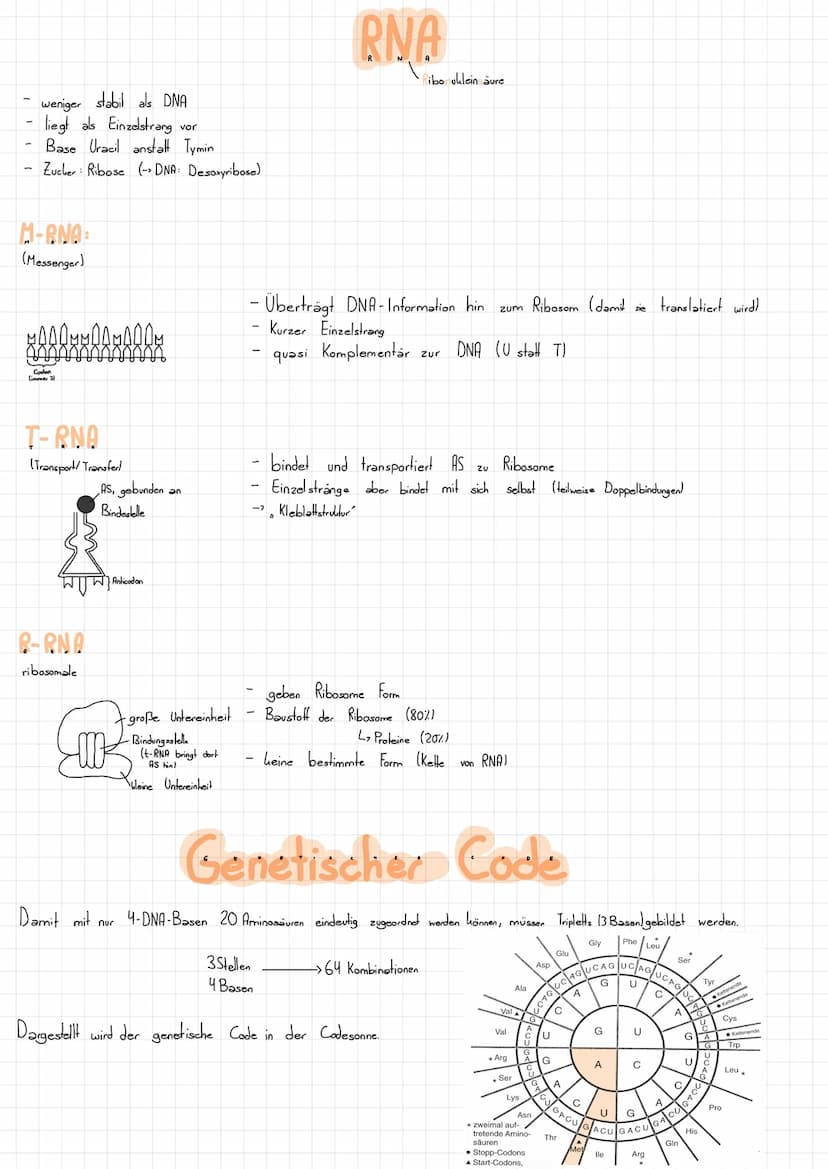 RNA
R N A
Ribonukleinsäure
- weniger stabil als DNA
- liegt als Einzelstrang vor
- Base Uracil anstatt Tymin
- Zucker: Ribose (-> DNA: Desoxyribose)
M-RNA:
(Messenger)
- Überträgt DNA-Information hin zum Ribosom (damit sie translatiert wird)
- Kurzer Einzelstrang
- quasi Komplementär zur DNA (U statt T)
Codon
(immer 3)
T-RNA
(Transport/Transfer)
- bindet und transportiert AS zu Ribosome
- Einzelstränge aber bindet mit sich selbst (teilweise Doppelbindungen)
-> "Kleblattstruktur"
AS, gebunden an
Bindestelle
Anticodon
R-RNA
ribosomale
- geben Ribosome Form
- Baustoff der Ribosome (80%)
↳ Proteine (20%)
- keine bestimmte Form (Kette von RNA)
große Untereinheit
Bindungsstelle
(t-RNA bringt dort
AS hin)
kleine Untereinheit
Genetischer Code
Damit mit nur 4-DNA-Basen 20 Aminosäuren eindeutig zugeordnet werden können, müssen Tripletts (3 Basen) gebildet werden.
3 Stellen
4 Basen
→ 64 Kombinationen
Dargestellt wird der genetische Code in der Codesonne.
Gly
Phe
Leu
Ser
Tyr
Kettenende
Kettenende
Cys
Kettenende
Trp
Leu
Pro
His
Gln
Arg
Ile
Met
Thr
Asn
Lys
Ser
Arg
Val
Val
Ala
Asp
Glu
G U
A C
• zweimal auf-
tretende Amino-
säuren
Stopp-Codons
▲ Start-Codons,